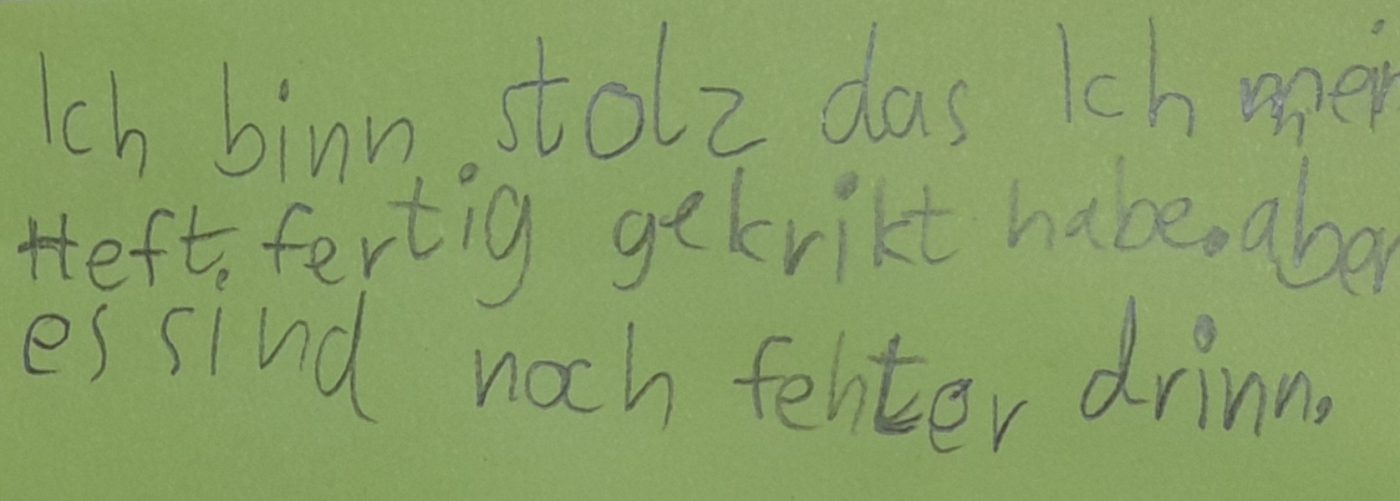 Ich binn stolz das Ich mein
Heft. fertig gekrikt habe. aber
es sind noch fehler drinn.